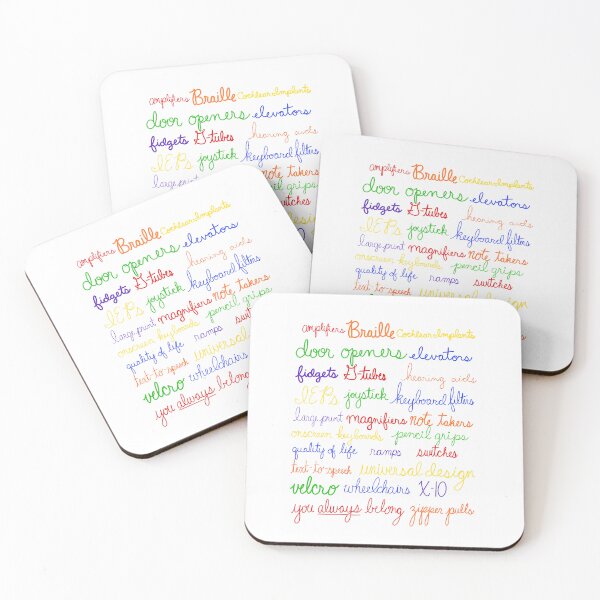 amplifiers Braille Cochlear Implants
door openers elevators
fidgets G-tubes hearing aids
IEPs joystick keyboard filters
large print note takers
grips
amplifiers Braille Cochlear Implants
door openers elevators
fidgets G-tubes hearing aids
IEPs joystick keyboard filters
large print magnifiers note takers
onscreen keyboards pencil grips
quality of life ramps switches
text-to-speech universal design
amplifiers Braille Cochlear Implants
door openers elevators
fidgets G-tubes hearing aids
IEPs joystick keyboard filters
large print magnifiers note takers
onscreen keyboards pencil grips
quality of life ramps
text-to-speech universal
velcro wheelchairs
you always belong
amplifiers Braille Cochlear Implants
door openers elevators
fidgets G-tubes hearing aids
IEPs joystick keyboard filters
large print magnifiers note takers
onscreen keyboards pencil grips
quality of life ramps switches
text-to-speech universal design
velcro wheelchairs X-10
you always belong zipper pulls